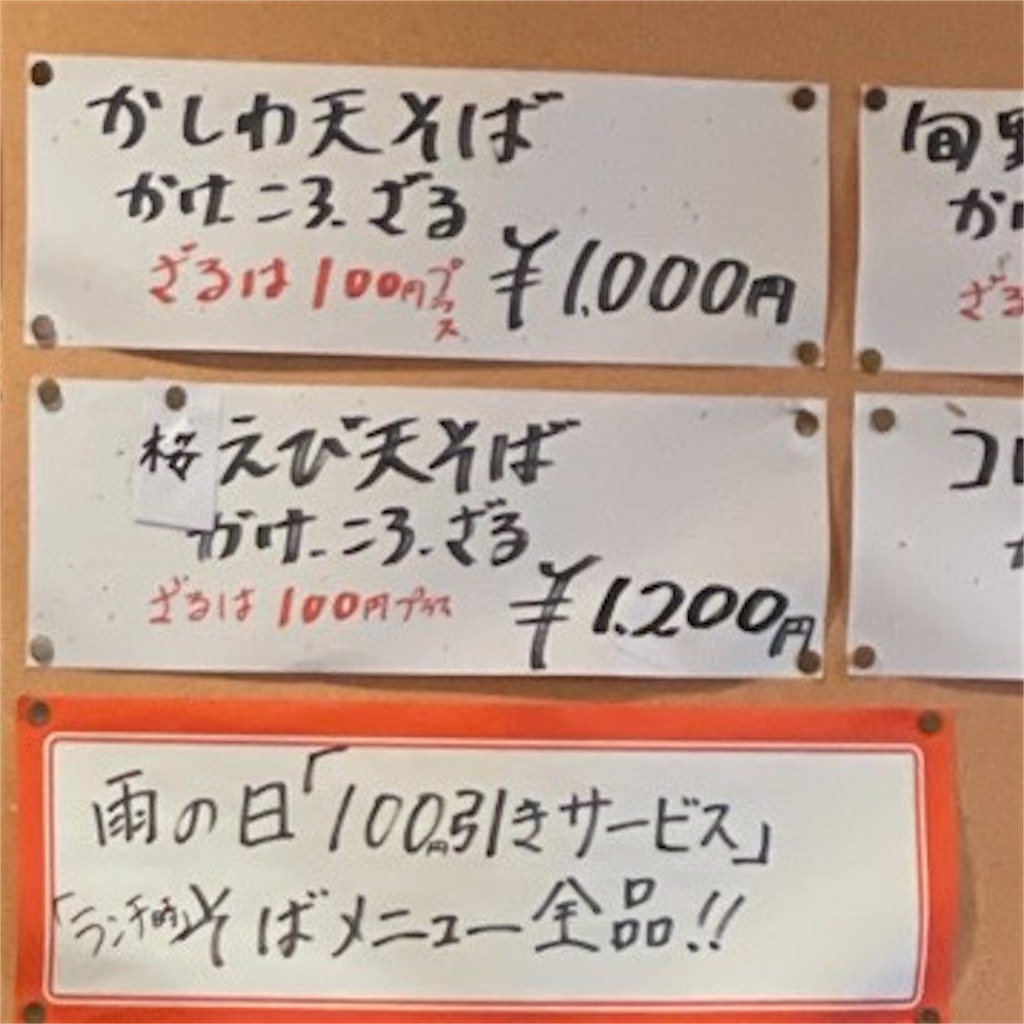 かしわ天そば
かけ.ころ.ざる
ざるは100円プラス
¥1.000円
桜えび天そば
かけ.ころ.ざる
ざるは100円プラス
¥1.200円
旬
か
ざる
コ
雨の日「100円引きサービス」
「ランチ時」そばメニュー全品!!